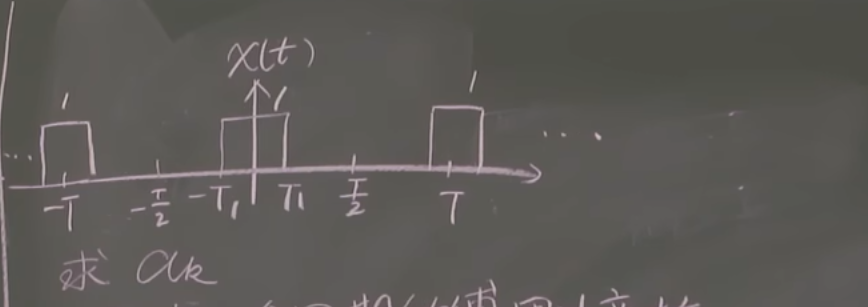 x(t)
1 1 1
... ....
-T -T/2 -T₁ T₁ T/2 T
求 ak